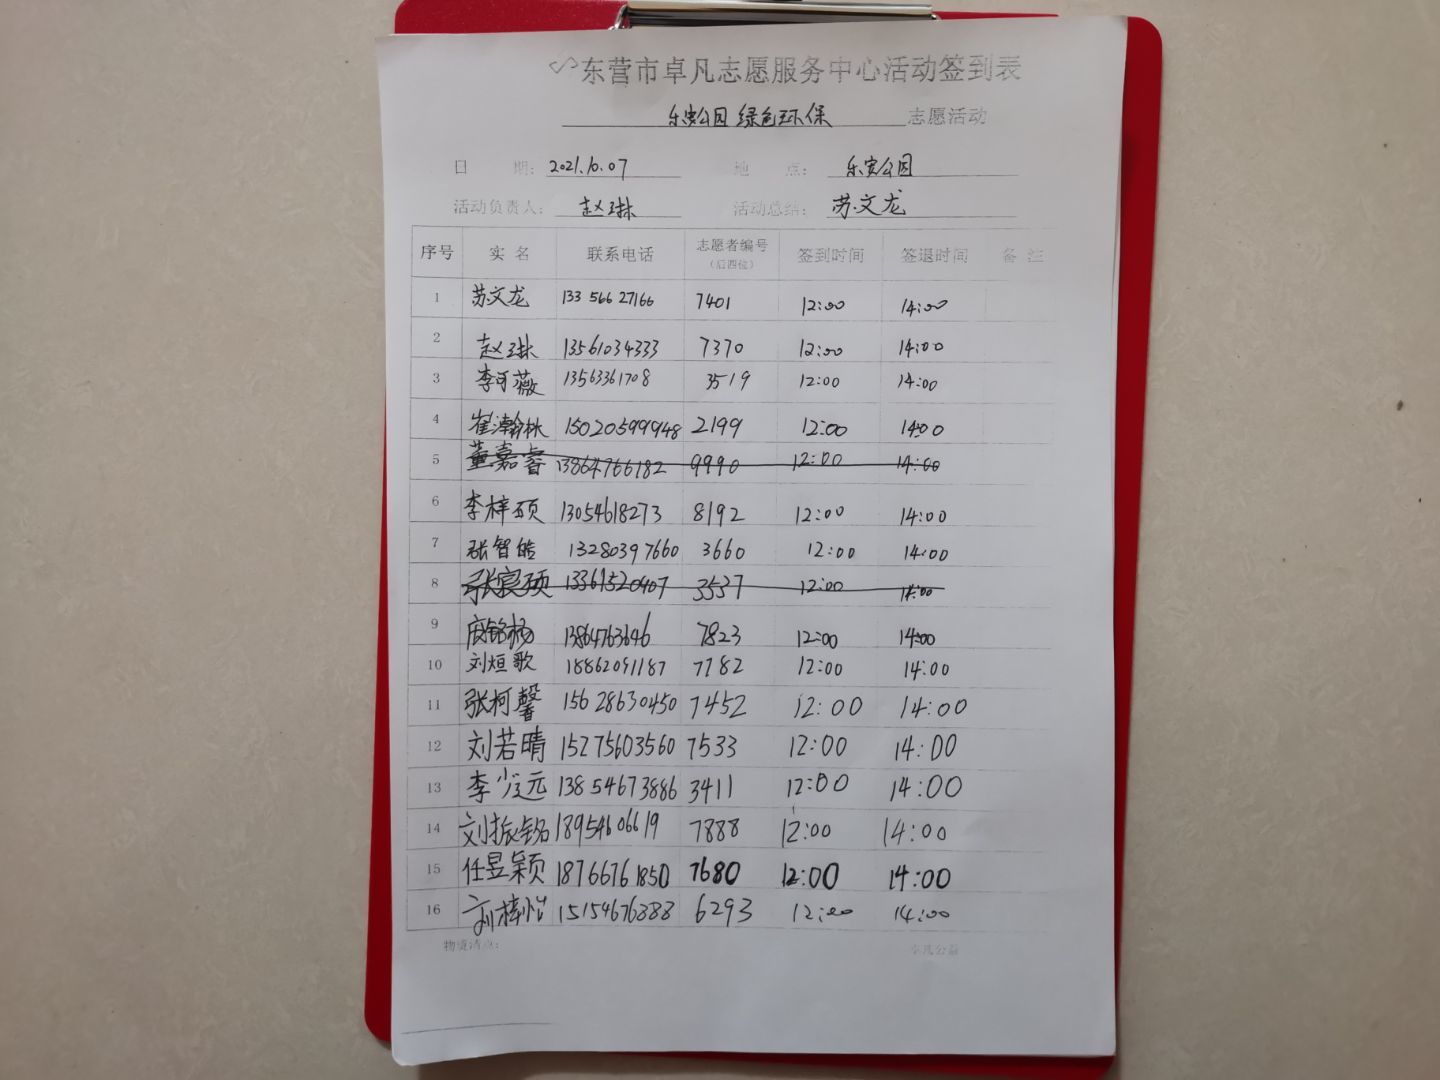 东营市卓凡志愿服务中心活动签到表
乐安公园 绿色环保 志愿活动
日 期: 2021.10.07 地 点: 乐安公园
活动负责人: 赵琳 活动总结: 苏文龙
序号 实名 联系电话 志愿者编号（后四位） 签到时间 签退时间 备注
1 苏文龙 13356627166 7401 12:00 14:00
2 赵琳 13561034333 7370 12:00 14:00
3 李可薇 13563361708 3519 12:00 14:00
4 崔瀚林 15020599948 2199 12:00 14:00
5 董嘉睿 13864766182 9990 12:00 14:00
6 李梓硕 13054618273 8192 12:00 14:00
7 张智皓 13280397660 3660 12:00 14:00
8 3537 12:00 14:00
9 13864763646 7823 12:00 14:00
10 刘烜歌 18862091187 7182 12:00 14:00
11 张柯馨 15628630450 7452 12:00 14:00
12 刘若晴 15275603560 7533 12:00 14:00
13 13854673886 3411 12:00 14:00
14 刘振铭 18954606619 7888 12:00 14:00
15 任昱颖 18766761850 7680 12:00 14:00
16 刘梓怡 15154676888 6293 12:00 14:00
物资清点: 卓凡公益